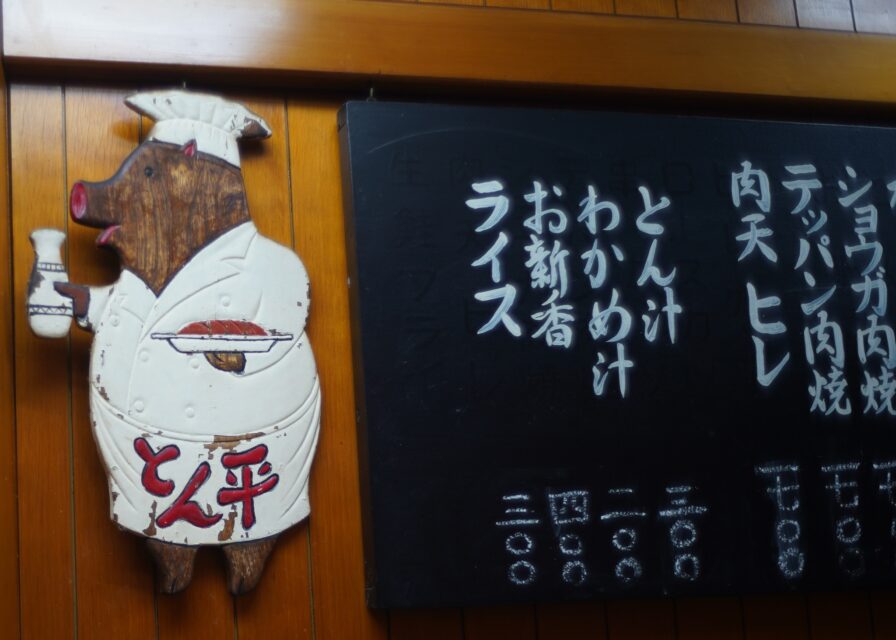 とん平
ショウガ肉焼
テッパン肉焼 七〇〇
肉天 ヒレ 七〇〇
とん汁 三〇〇
わかめ汁 二〇〇
お新香 四〇〇
ライス 三〇〇